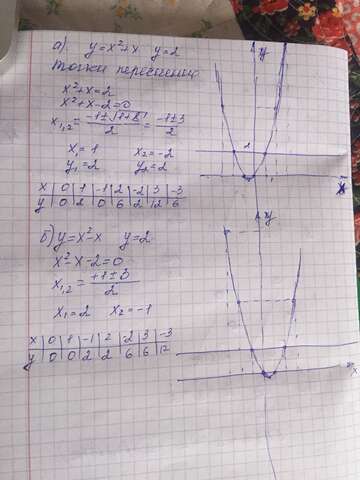 а). y = x²+x   y = 2
Точки пересечения
x²+x=2
x²+x-2=0
x₁,₂ = (-1±√(1+8))/2 = (-1±3)/2
x₁=1   x₂=-2
y₁=2   y₂=2
x | 0 | 1 | -1 | 2 | -2 | 3 | -3
y | 0 | 2 | 0 | 6 | 2 | 12 | 6
б) y=x²-x   y=2
x²-x-2=0
x₁,₂ = (+1±3)/2
x₁=2   x₂=-1
x | 0 | 1 | -1 | 2 | -2 | 3 | -3
y | 0 | 0 | 2 | 2 | 6 | 6 | 12
y
2
x
y
x